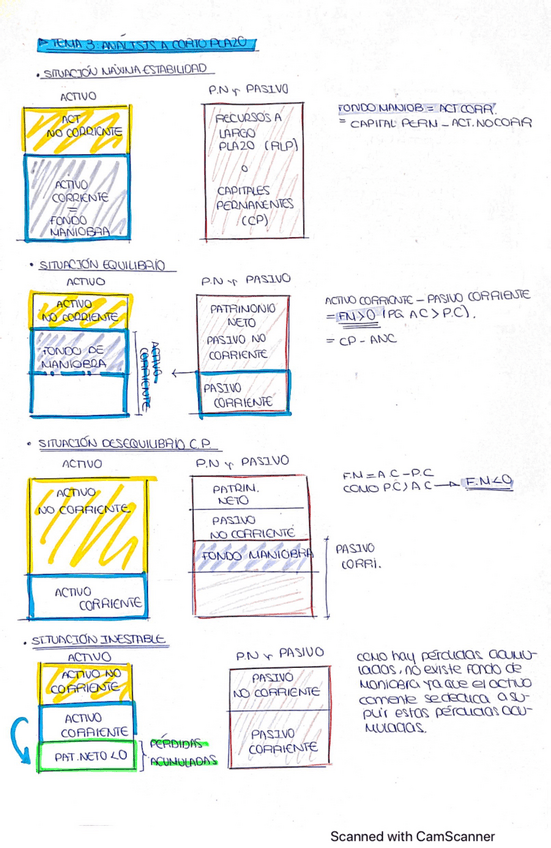 ► TEMA 3: ANÁLISIS A CORTO PLAZO
• SITUACIÓN MÁXIMA ESTABILIDAD
ACTIVO
P.N y PASIVO
ACT
NO CORRIENTE
ACTIVO
CORRIENTE
=
FONDO
MANIOBRA
RECURSOS A
LARGO
PLAZO (RLP)
O
CAPITALES
PERMANENTES
(CP)
FONDO MANIOB = ACT CORR.
= CAPITAL PERM - ACT. NO CORR
• SITUACIÓN EQUILIBRIO
ACTIVO
P.N y PASIVO
ACTIVO
NO CORRIENTE
FONDO DE
MANIOBRA
ACTIVO
CORRIENTE
PATRIMONIO
NETO
PASIVO NO
CORRIENTE
PASIVO
CORRIENTE
ACTIVO CORRIENTE - PASIVO CORRIENTE
= FM>0 (PQ AC > PC).
= CP - ANC
• SITUACIÓN DESEQUILIBRIO C.P
ACTIVO
P.N y PASIVO
ACTIVO
NO CORRIENTE
ACTIVO
CORRIENTE
PATRIM.
NETO
PASIVO
NO CORRIENTE
FONDO MANIOBRA
PASIVO
CORRI.
F.M = A.C - P.C
COMO PC > AC → F.M<0
• SITUACIÓN INESTABLE
ACTIVO
P.N y PASIVO
ACTIVO NO
CORRIENTE
ACTIVO
CORRIENTE
PAT. NETO <0
PÉRDIDAS
ACUMULADAS
PASIVO
NO CORRIENTE
PASIVO
CORRIENTE
COMO HAY PÉRDIDAS ACUMU-
LADAS, NO EXISTE FONDO DE
MANIOBRA YA QUE EL ACTIVO
CORRIENTE SE DEDICA A SU-
PLIR ESTAS PÉRDIDAS ACU-
MULADAS.
Scanned with CamScanner